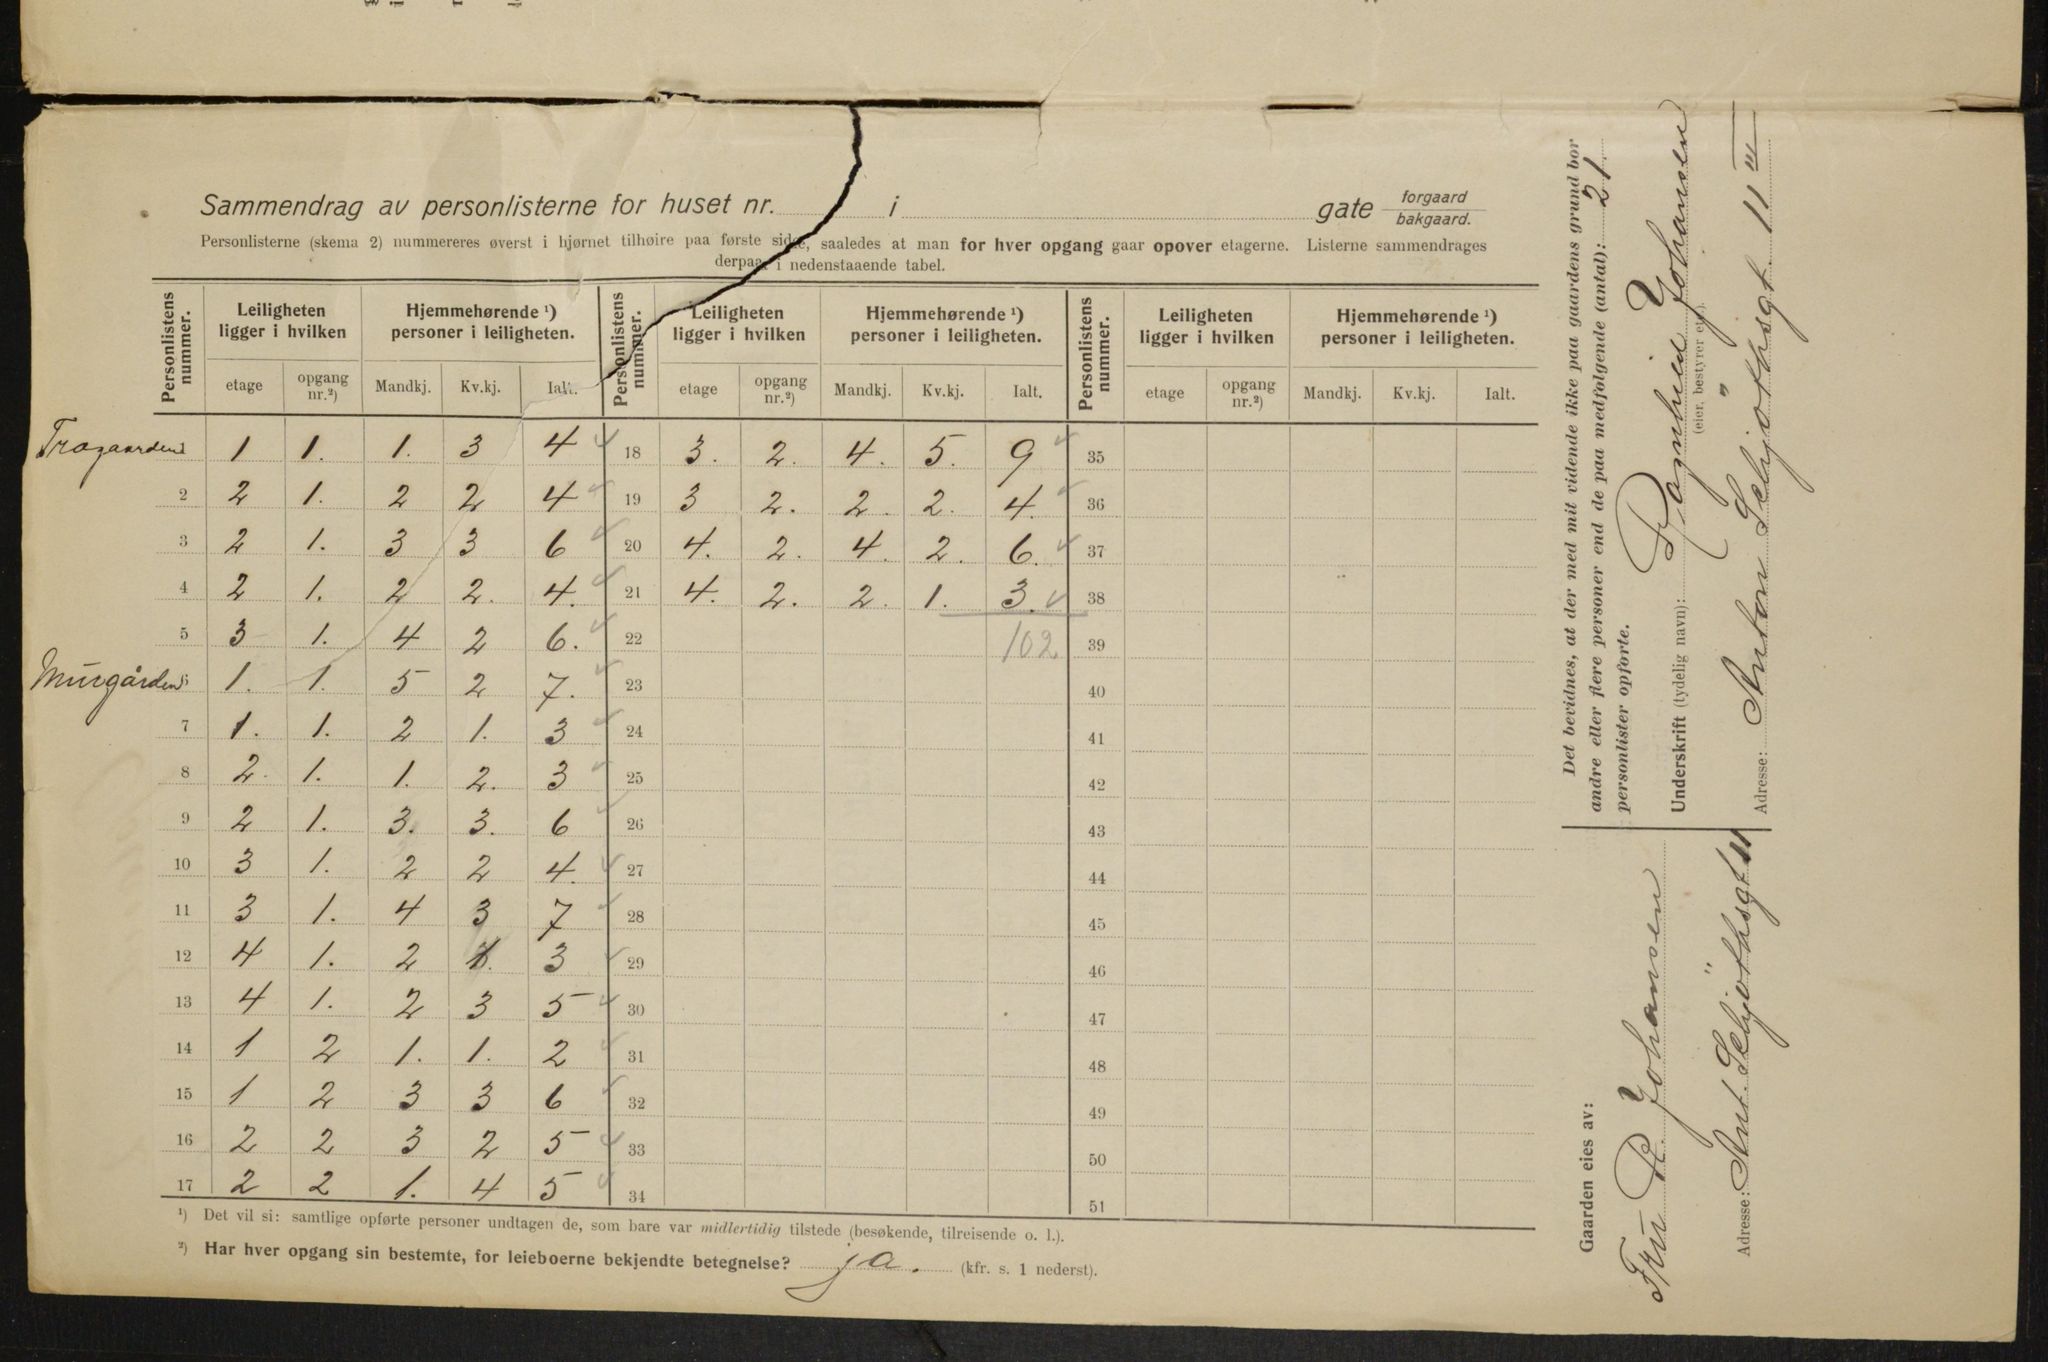 Sammendrag av personlisterne for huset nr. i gate forgaard bakgaard.
Personlisterne (skema 2) nummereres øverst i hjørnet tilhøire paa første side, saaledes at man for hver opgang gaar opover etagerne. Listerne sammendrages
derpaa i nedenstaaende tabel.
Personlistens nummer. Leiligheten ligger i hvilken Hjemmehørende ¹) personer i leiligheten. Personlistens nummer. Leiligheten ligger i hvilken Hjemmehørende ¹) personer i leiligheten. Personlistens nummer. Leiligheten ligger i hvilken Hjemmehørende ¹) personer i leiligheten.
etage opgang nr.²) Mandkj. Kv.kj. Ialt. etage opgang nr.²) Mandkj. Kv.kj. Ialt. etage opgang nr.²) Mandkj. Kv.kj. Ialt.
Trægaarden 1 1 1. 1. 3 4 18 3. 2. 4. 5. 9 35
2 2 1. 2 2 4 19 3 2. 2. 2. 4. 36
3 2 1. 3 3 6 20 4. 2. 4. 2. 6. 37
4 2 1. 2 2. 4. 21 4. 2. 2. 1. 3. 38
5 3 1. 4 2 6. 22 102 39
Murgården 6 1. 1. 5 2 7. 23 40
7 1. 1. 2 1. 3 24 41
8 2. 1. 1. 2. 3 25 42
9 2 1. 3. 3. 6 26 43
10 3 1. 2 2 4. 27 44
11 3 1. 4 3 7 28 45
12 4 1. 2 1. 3 29 46
13 4 1. 2 3 5 30 47
14 1 2 1. 1. 2 31 48
15 1 2 3 3 6 32 49
16 2 2 3 2 5 33 50
17 2 2 1. 4 5 34 51
¹) Det vil si: samtlige opførte personer undtagen de, som bare var midlertidig tilstede (besøkende, tilreisende o. l.).
²) Har hver opgang sin bestemte, for leieboerne bekjendte betegnelse? ja. (kfr. s. 1 nederst).
Det bevidnes, at der med mit vidende ikke paa gaardens grund bor
andre eller flere personer end de paa medfølgende (antal): 21.
personlister opførte.
Underskrift (tydelig navn): Ragnhild Johansen
(eier, bestyrer etc.).
Adresse: Anton Schjøthsgt. 11 III
Gaarden eies av:
Fru R. Johansen
Adresse: Ant. Schjöthsgt 11